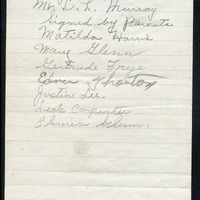 Mr. D. L. Murray
signed by parents
Matilda Harris
Mary Glenn
Gertrude Frye
Edner Thornton
Justin Lee.
Dick Carpenter
Elmeria Glenn.